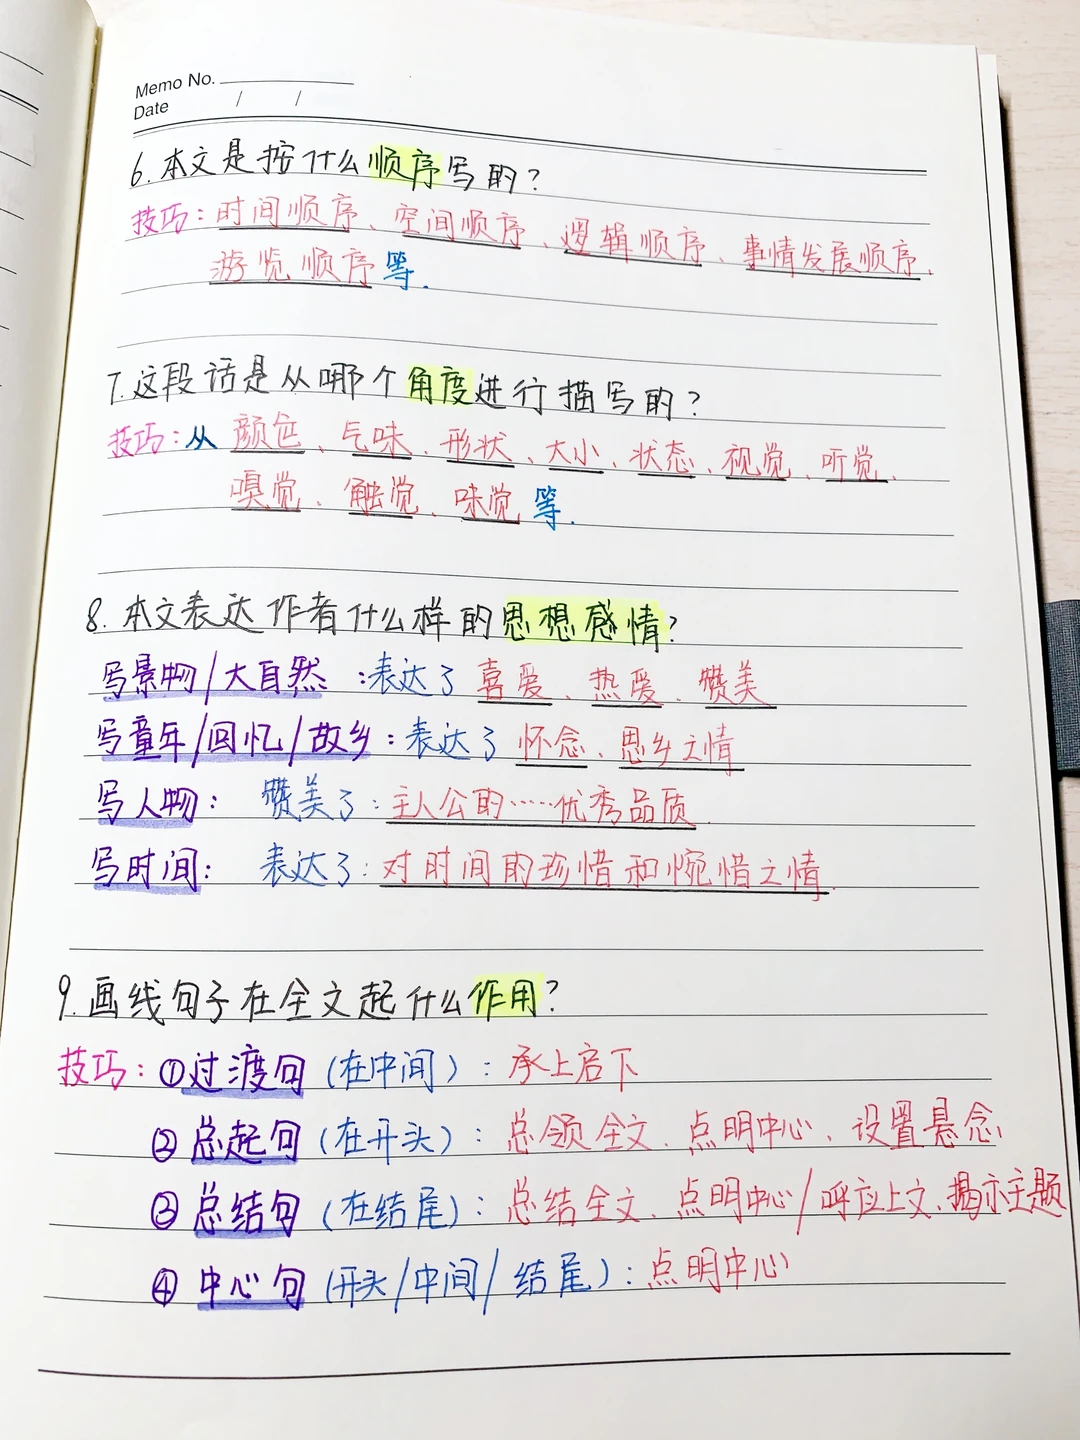 Memo No.
Date / /
6.本文是按什么顺序写的?
技巧:时间顺序、空间顺序、逻辑顺序、事情发展顺序、
游览顺序等.
7.这段话是从哪个角度进行描写的?
技巧:从颜色、气味、形状、大小、状态、视觉、听觉、
嗅觉、触觉、味觉等.
8.本文表达作者什么样的思想感情?
写景物/大自然:表达了喜爱、热爱、赞美
写童年/回忆/故乡:表达了怀念、思乡之情
写人物:赞美了:主人公的……优秀品质
写时间:表达了:对时间的珍惜和惋惜之情.
9.画线句子在全文起什么作用?
技巧:①过渡句(在中间):承上启下
②总起句(在开头):总领全文、点明中心、设置悬念
③总结句(在结尾):总结全文、点明中心/呼应上文、揭示主题
④中心句(开头/中间/结尾):点明中心